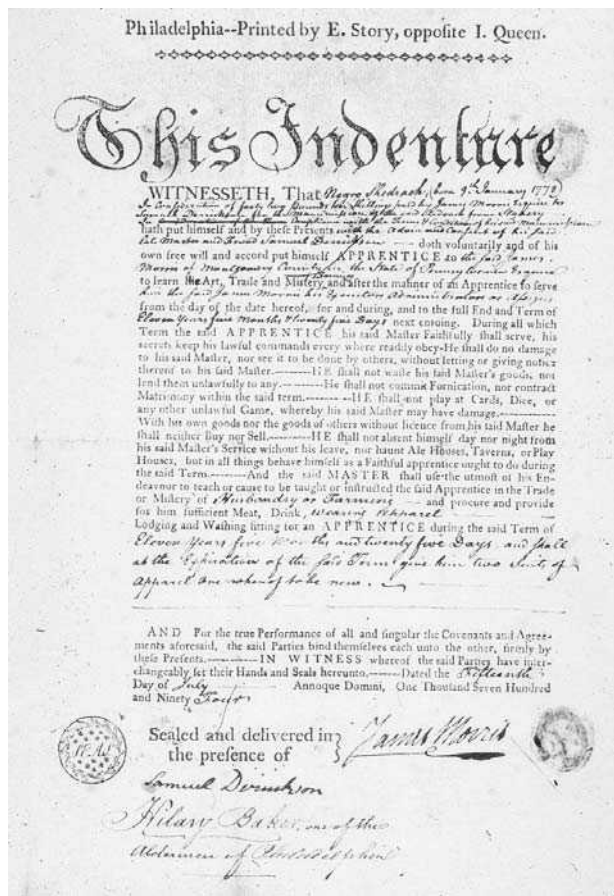 Philadelphia--Printed by E. Story, opposite I. Queen.
This Indenture
WITNESSETH, That Negro Shedrach, (born 9th January 1778)
In Consideration of forty two Pounds ten Shillings paid by James Morris Esquire to
Samuel Derrickson for the Manumission of the said Shedrach from Slavery
hath put himself and by these Presents with the Advice and Consent of his said
late Master and Friend Samuel Derrickson doth voluntarily and of his
own free will and accord put himself APPRENTICE to the said James
Morris of Montgomery County in the State of Pennsylvania Esquire
to learn the Art, Trade and Mistery and after the manner of an Apprentice to serve
him the said James Morris his Executors Administrators or Assigns
from the day of the date hereof, for and during, and to the full End and Term of
Eleven Years five Months & twenty five Days next ensuing. During all which
Term the said APPRENTICE his said Master Faithfully shall serve, his
secrets keep his lawful commands every where readily obey-He shall do no damage
to his said Master, nor see it to be done by others, without letting or giving notice
thereof to his said Master.--------HE shall not waste his said Master's goods, nor
lend them unlawfully to any.--------He shall not commit Fornication, nor contract
Matrimony within the said term.--------HE shall not play at Cards, Dice, or
any other unlawful Game, whereby his said Master may have damage.----------
With his own goods nor the goods of others without licence from his said Master he
shall neither Buy nor Sell.--------HE shall not absent himself day nor night from
his said Master's Service without his leave, nor haunt Ale Houses, Taverns, or Play
Houses, but in all things behave himself as a Faithful apprentice ought to do during
the said Term.--------And the said MASTER shall use the utmost of his En-
deavour to teach or cause to be taught or instructed the said Apprentice in the Trade
or Mistery of Husbandry or Farming -- and procure and provide
for him sufficient Meat, Drink, wearing Apparel
Lodging and Washing fitting for an APPRENTICE during the said Term of
Eleven Years five Months and twenty five Days and shall
at the Expiration of the said Term give him two Suits of
Apparel one whereof to be new.
AND For the true Performance of all and singular the Covenants and Agree-
ments aforesaid, the said Parties bind themselves each unto the other, firmly by
these Presents.--------IN WITNESS whereof the said Parties have inter-
changeably set their Hands and Seals hereunto.------Dated the Fifteenth
Day of July Annoque Domini, One Thousand Seven Hundred
and Ninety Four
Sealed and delivered in
the presence of
James Morris
Samuel Derickson
Hilary Baker, one of the
Aldermen of Philadelphia